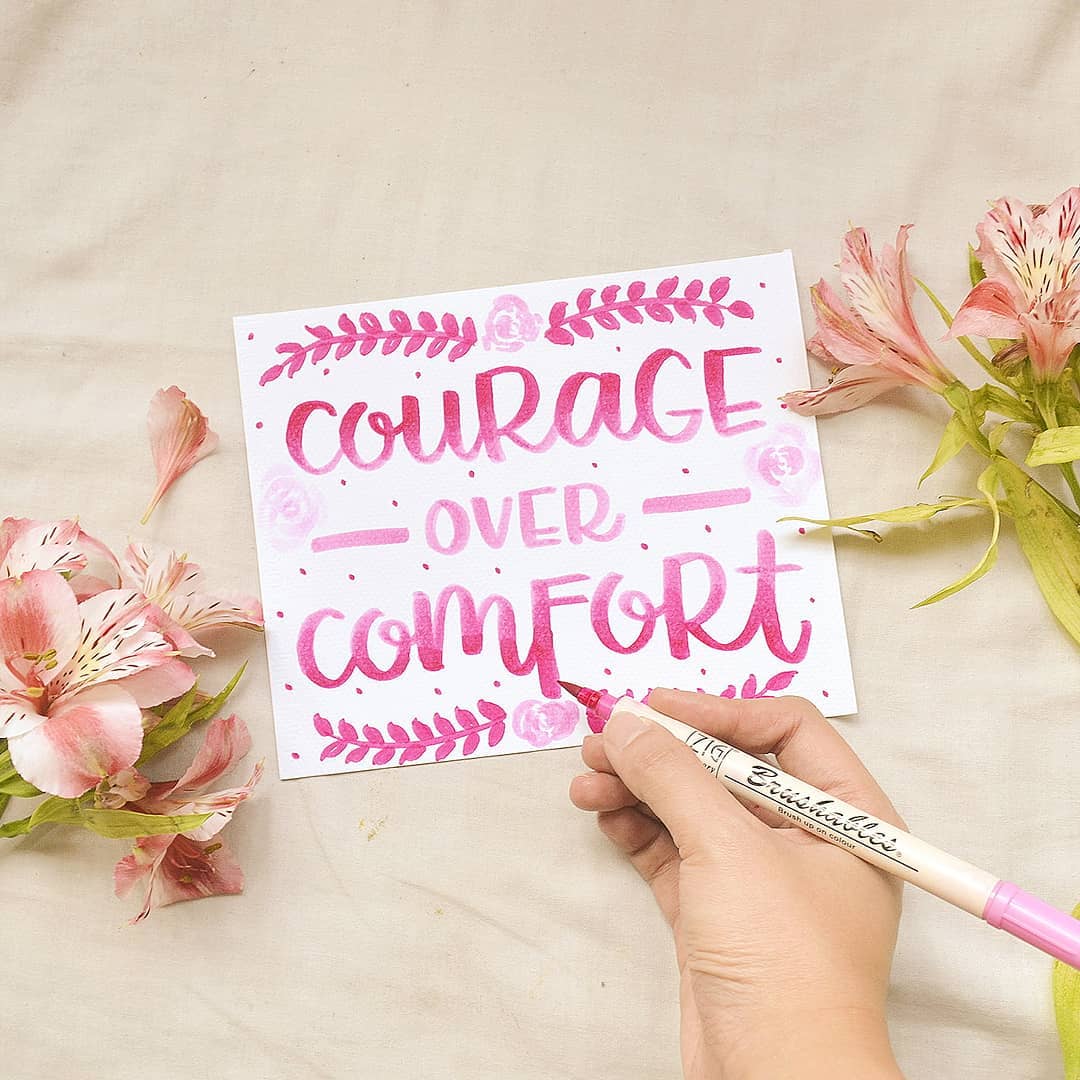 COURAGE
OVER
COMFORT
ZIG
Brushables®
Brush up on colour